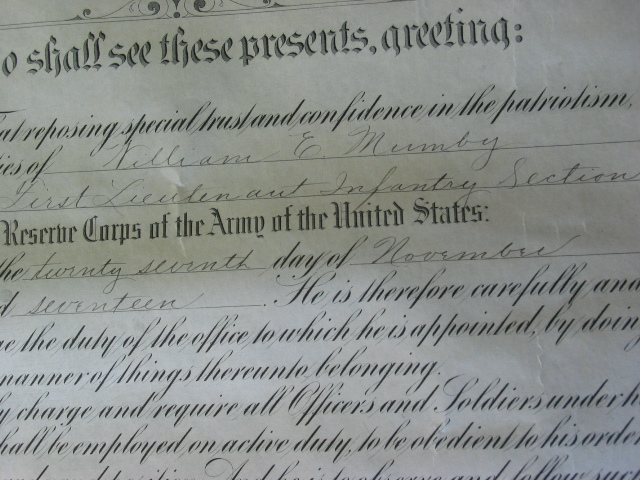 o shall see these presents, greeting:
at reposing special trust and confidence in the patriotism,
ies of William E. Mumby
First Lieutenant Infantry Section
Reserve Corps of the Army of the United States:
the twenty seventh day of November
d seventeen. He is therefore carefully and
e the duty of the office to which he is appointed, by doing
manner of things thereunto belonging.
y charge and require all Officers and Soldiers under h
hall be employed on active duty, to be obedient to his order
And he is to observe and follow such